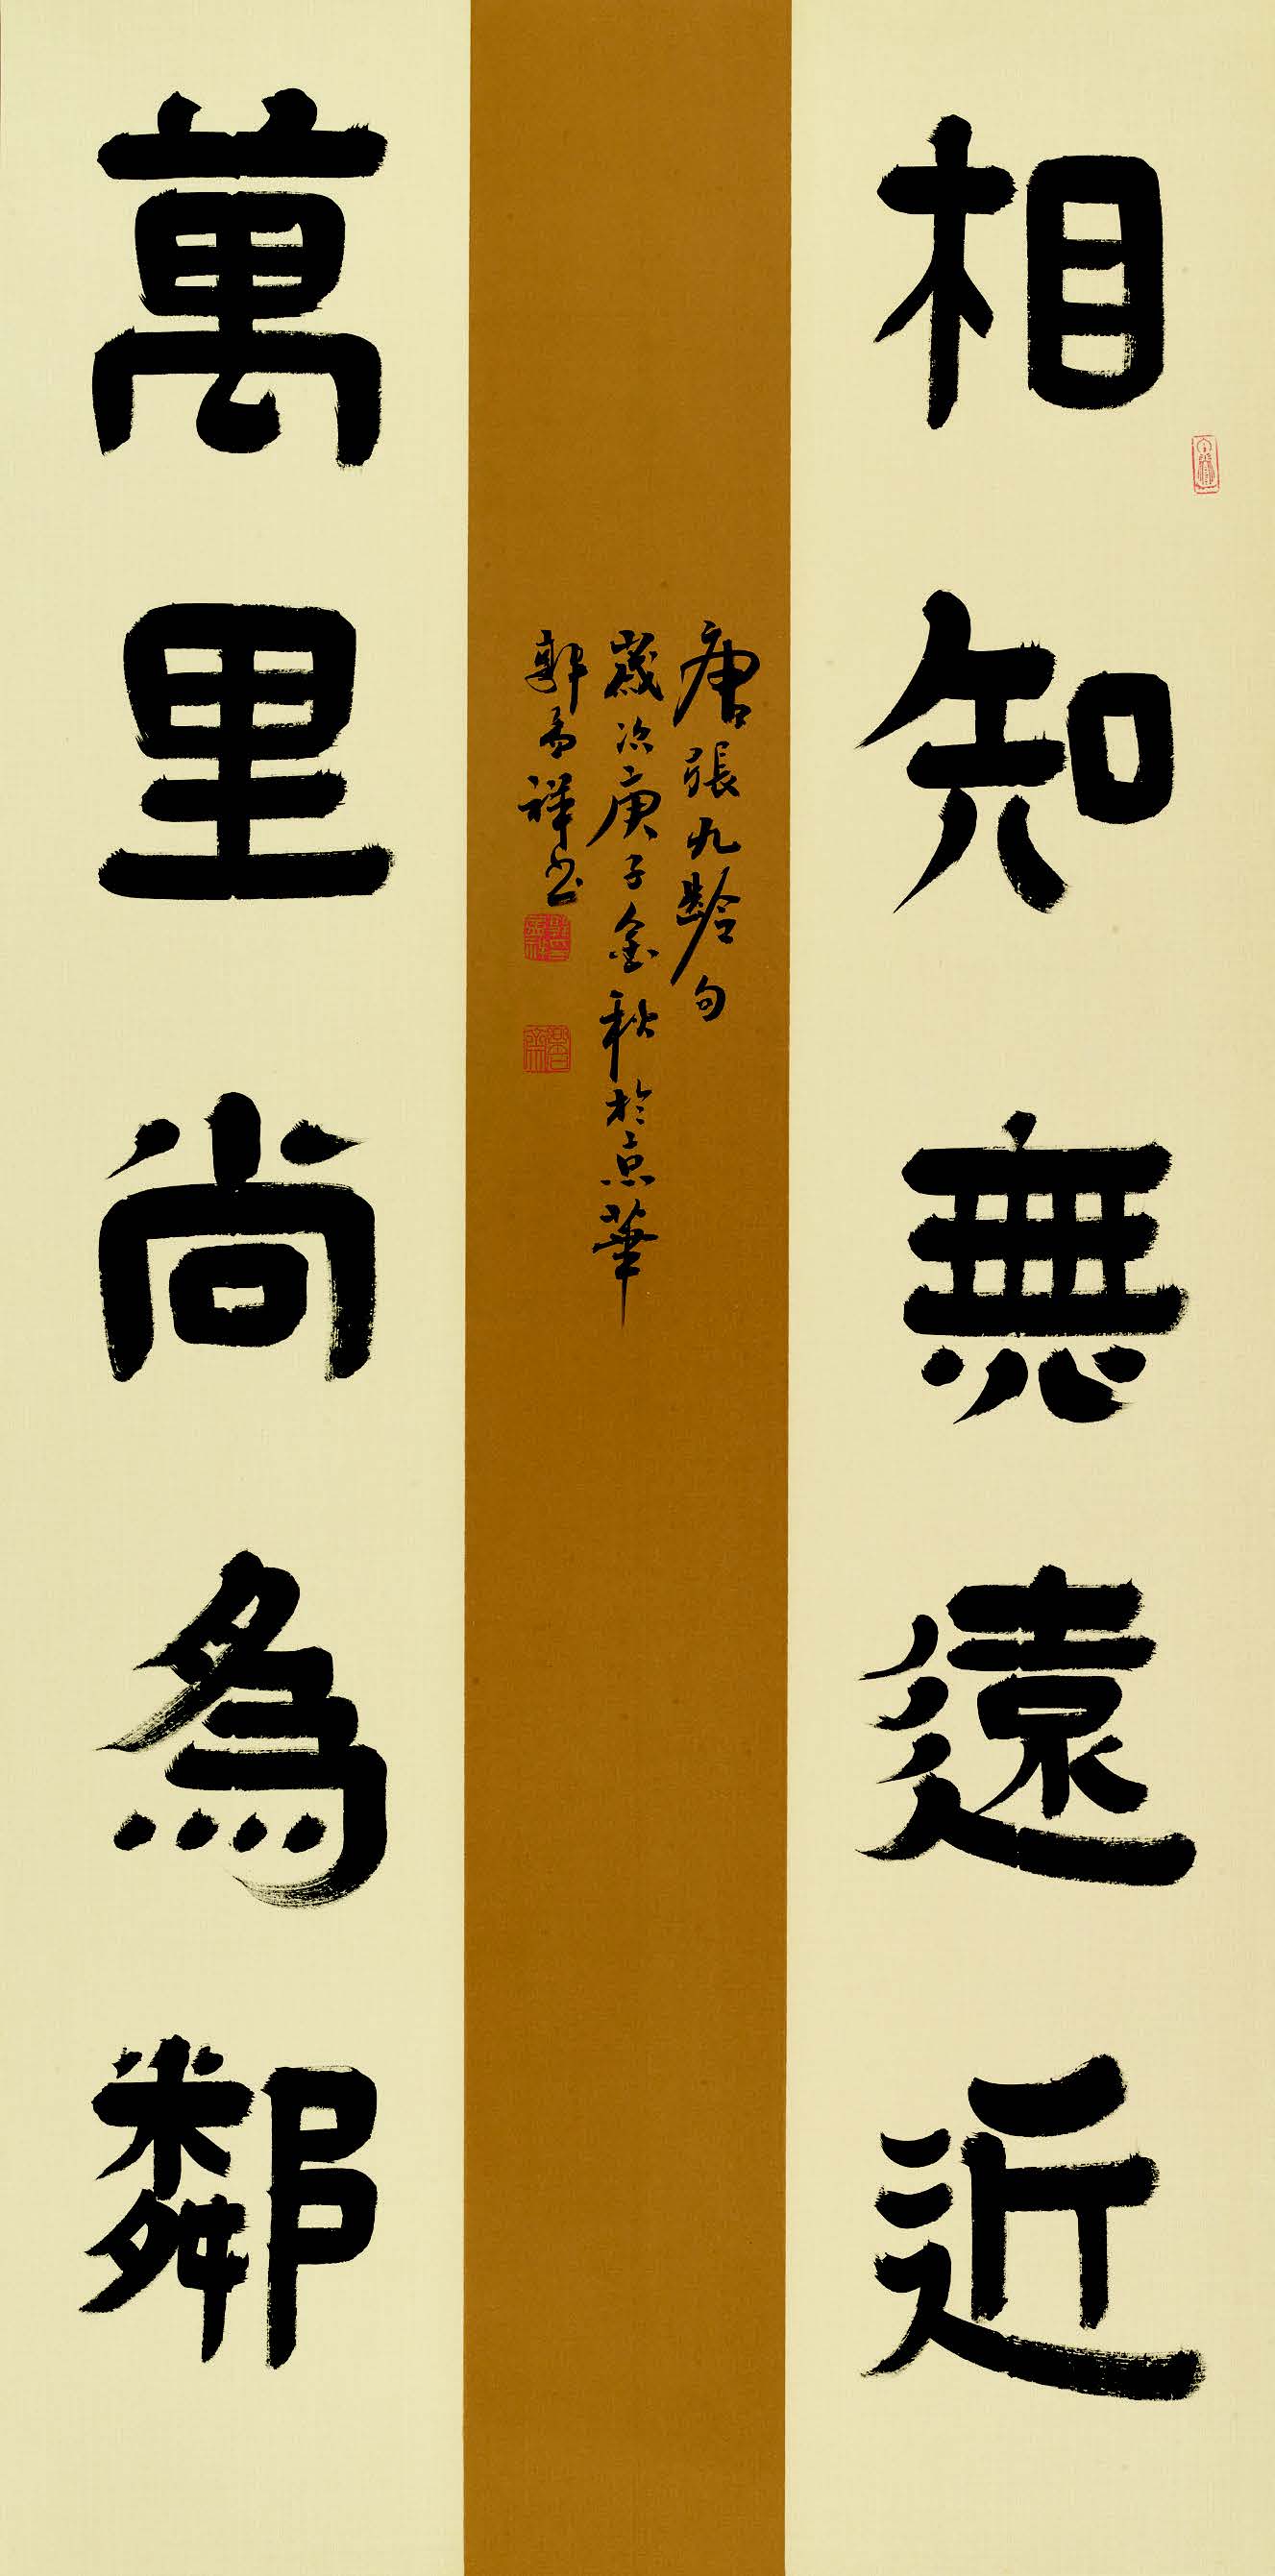 相知無遠近
萬里尚為鄰
唐張九齡句
歲次庚子金秋於京華
郭孟祥書